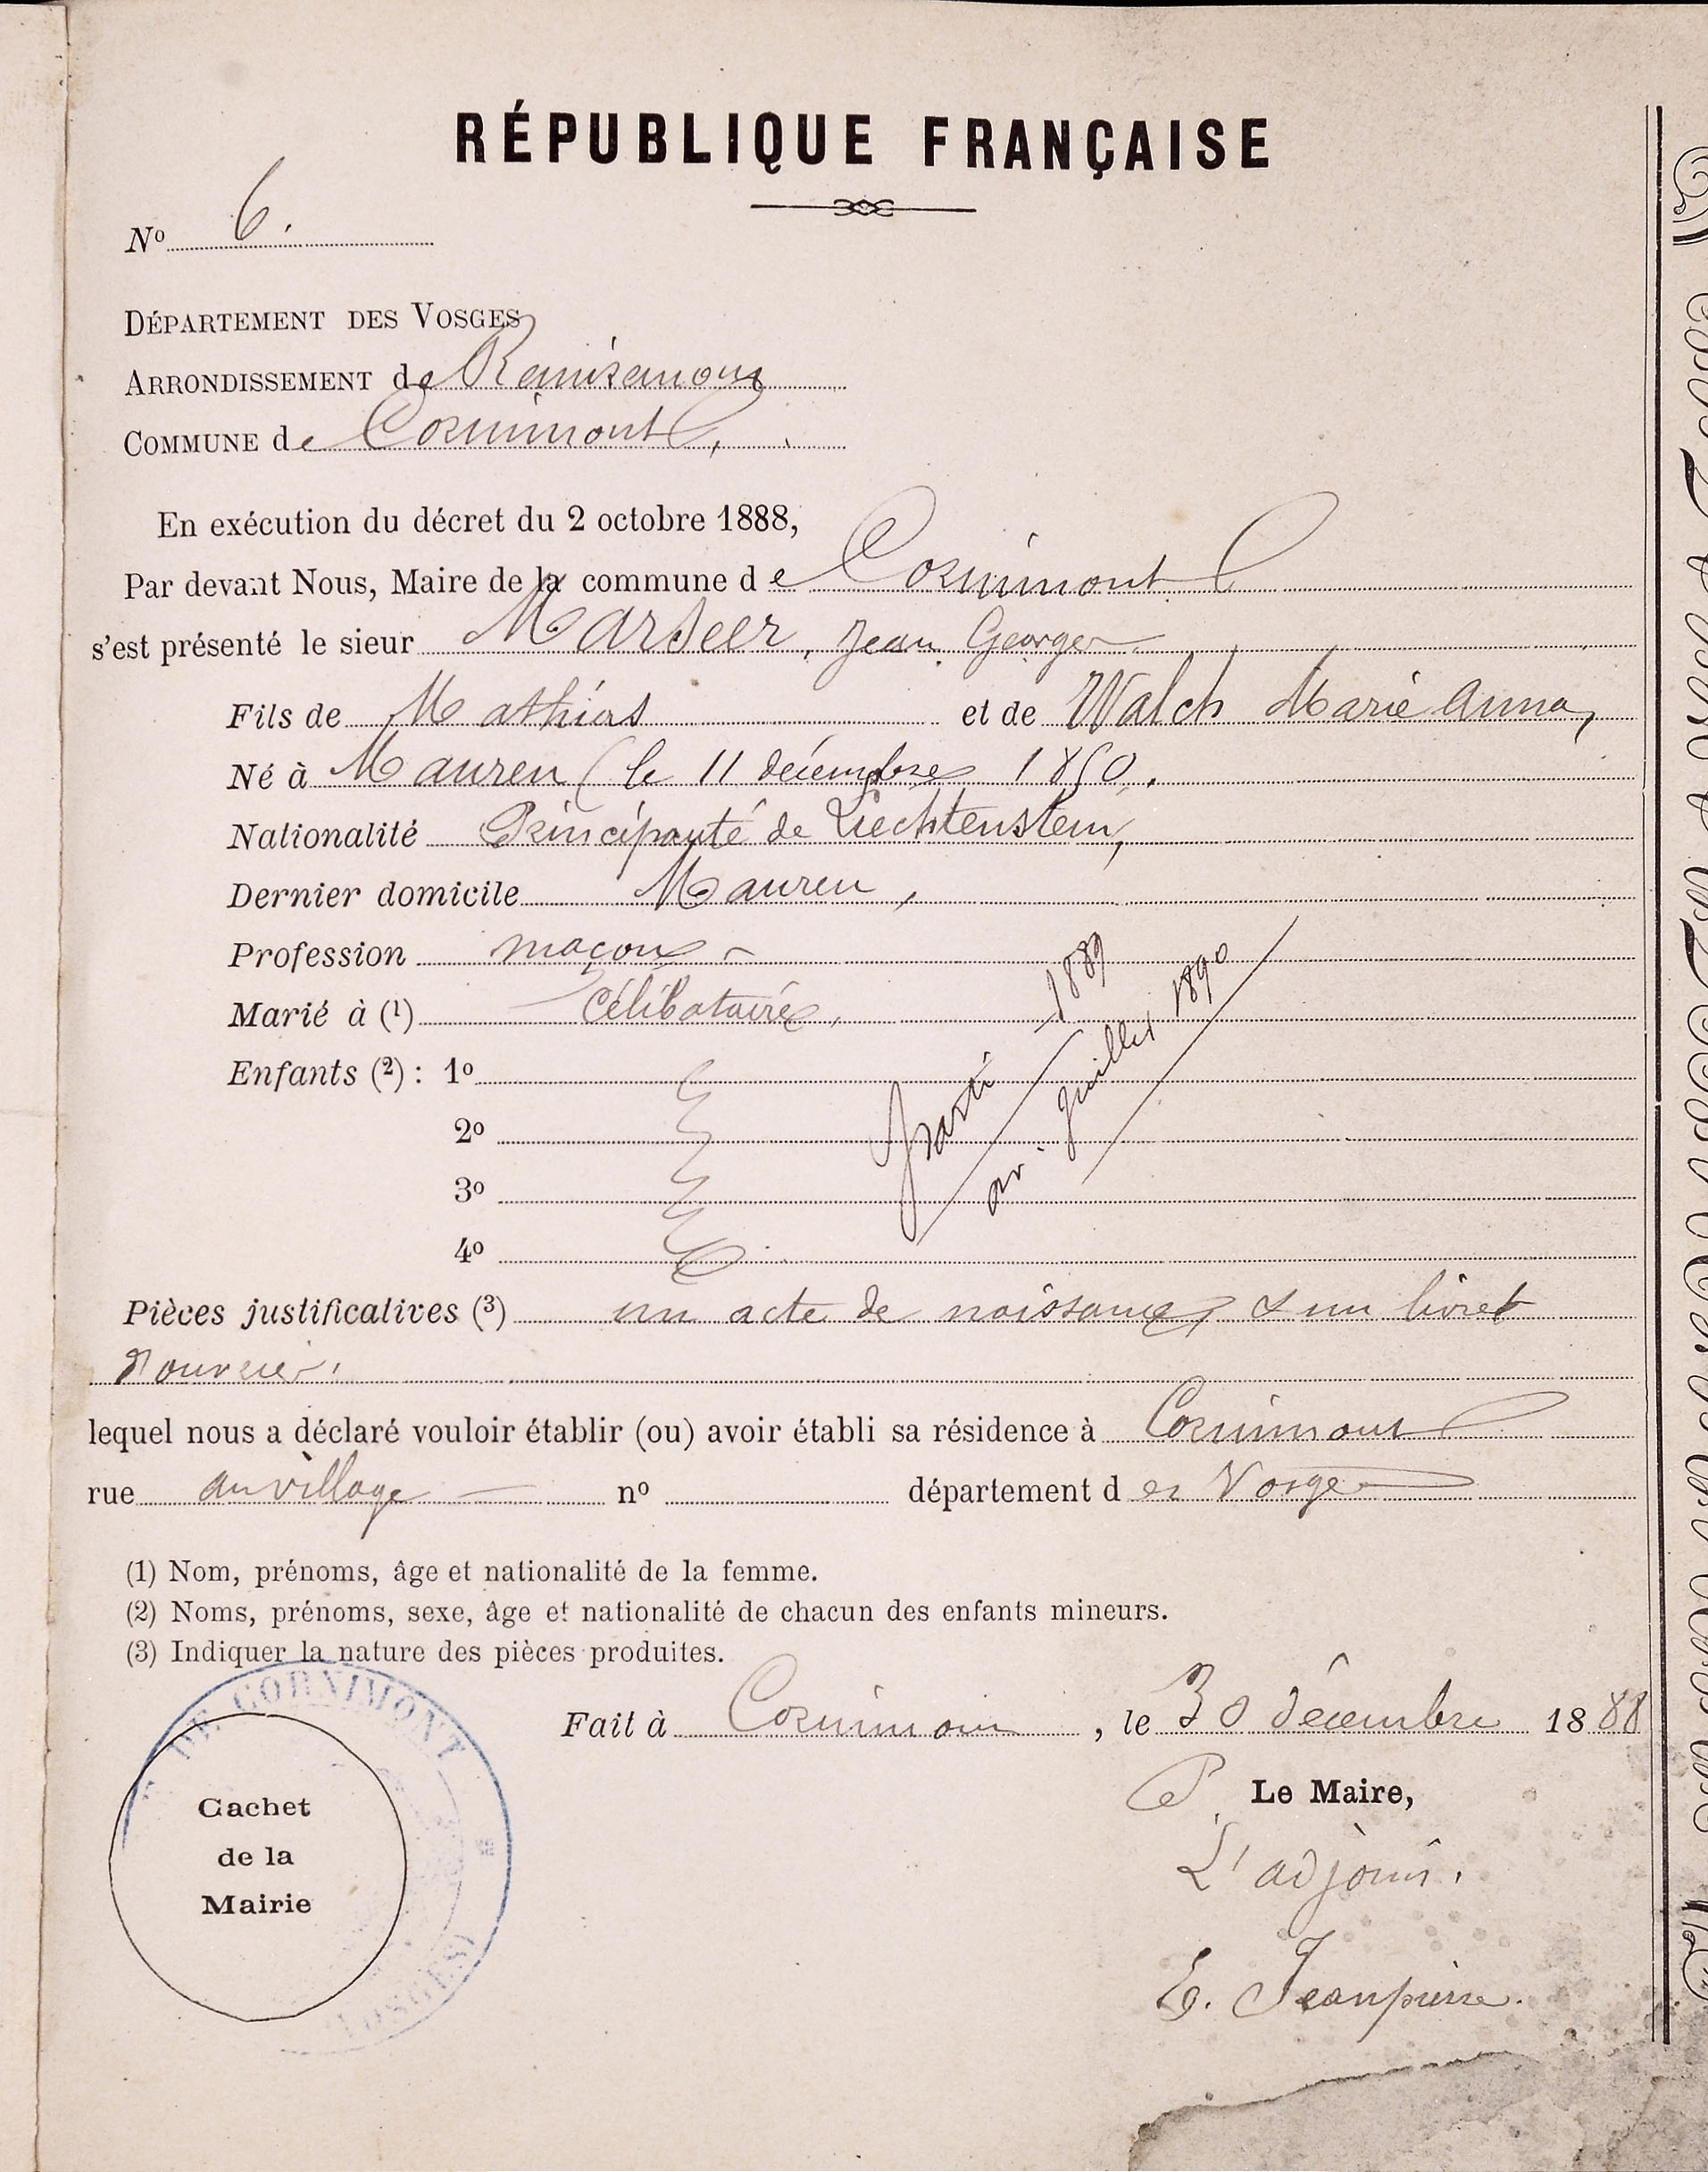 RÉPUBLIQUE FRANÇAISE
Nº 6.
DÉPARTEMENT DES VOSGES
ARRONDISSEMENT de Remiremont
COMMUNE de Cornimont,
En exécution du décret du 2 octobre 1888,
Par devant Nous, Maire de la commune de Cornimont
s'est présenté le sieur Marseer, Jean Georges
Fils de Mathias et de Walch Marie Anna,
Né à Mauren (le 11 décembre 1850.
Nationalité Principauté de Liechtenstein,
Dernier domicile Mauren,
Profession maçon
Marié à (1) Célibataire,
Enfants (2) : 1º
2º
3º
4º
parti 1889
juillet 1890
Pièces justificatives (3) un acte de naissance, & un livret
d'ouvrier.
lequel nous a déclaré vouloir établir (ou) avoir établi sa résidence à Cornimont
rue au village nº département des Vosges
(1) Nom, prénoms, âge et nationalité de la femme.
(2) Noms, prénoms, sexe, âge et nationalité de chacun des enfants mineurs.
(3) Indiquer la nature des pièces produites.
Fait à Cornimont, le 30 décembre 1888
P. Le Maire,
L'adjoint.
E. Jeanpierre.
DE CORNIMONT
(VOSGES)
Cachet
de la
Mairie